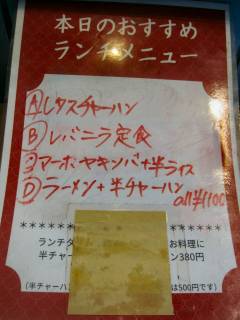 本日のおすすめ
ランチメニュー
Ⓐレタスチャーハン
Ⓑレバニラ定食
Ⓒマーボヤキソバ+半ライス
Ⓓラーメン+半チャーハン
all¥1100
********
ランチタ
お料理に
半チャー
ン380円
(半チャーハ
は500円です)